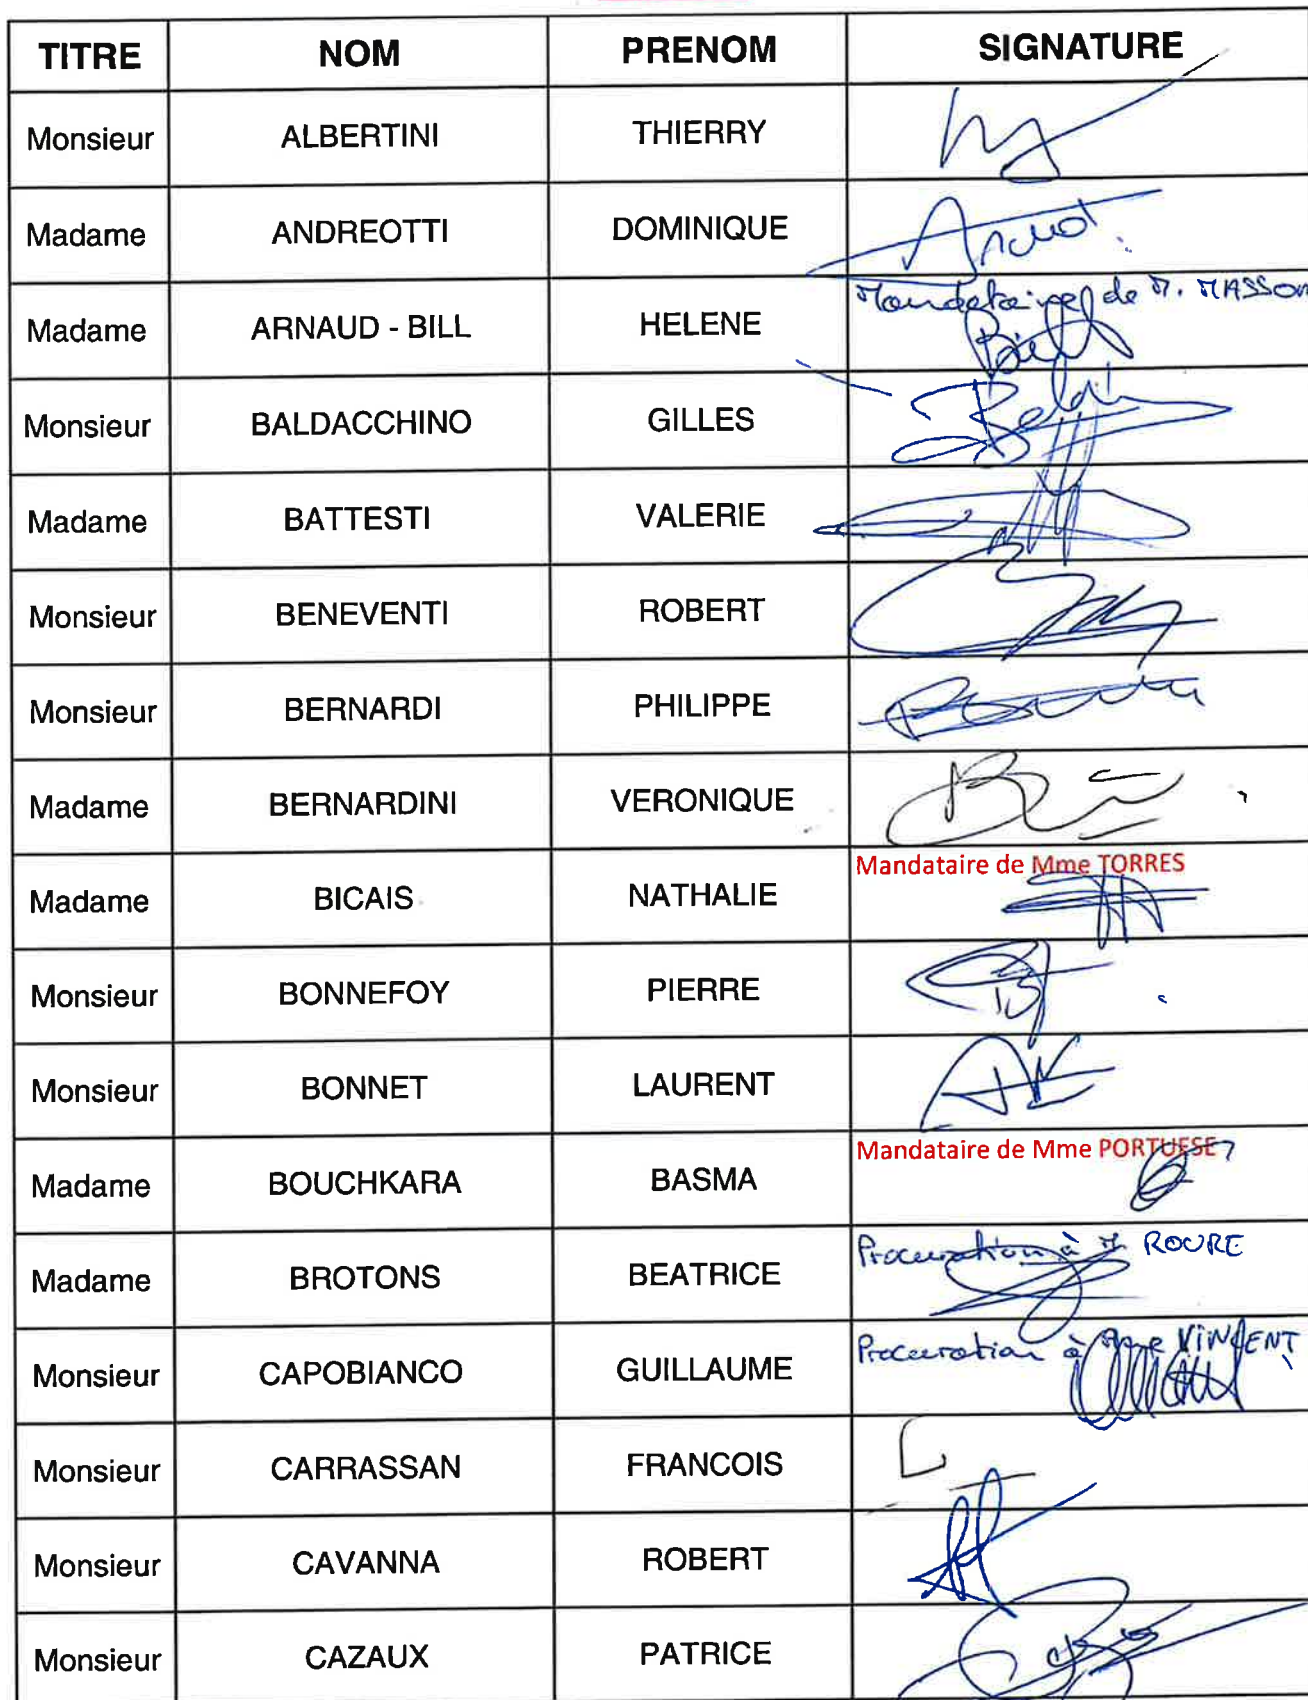 TITRE NOM PRENOM SIGNATURE
Monsieur ALBERTINI THIERRY
Madame ANDREOTTI DOMINIQUE
Madame ARNAUD - BILL HELENE Mandataire de M. MASSON
Monsieur BALDACCHINO GILLES
Madame BATTESTI VALERIE
Monsieur BENEVENTI ROBERT
Monsieur BERNARDI PHILIPPE
Madame BERNARDINI VERONIQUE
Madame BICAIS NATHALIE Mandataire de Mme TORRES
Monsieur BONNEFOY PIERRE
Monsieur BONNET LAURENT
Madame BOUCHKARA BASMA Mandataire de Mme PORTUESE
Madame BROTONS BEATRICE Procuration à M. ROURE
Monsieur CAPOBIANCO GUILLAUME Procuration à Mme VINCENT
Monsieur CARRASSAN FRANCOIS
Monsieur CAVANNA ROBERT
Monsieur CAZAUX PATRICE